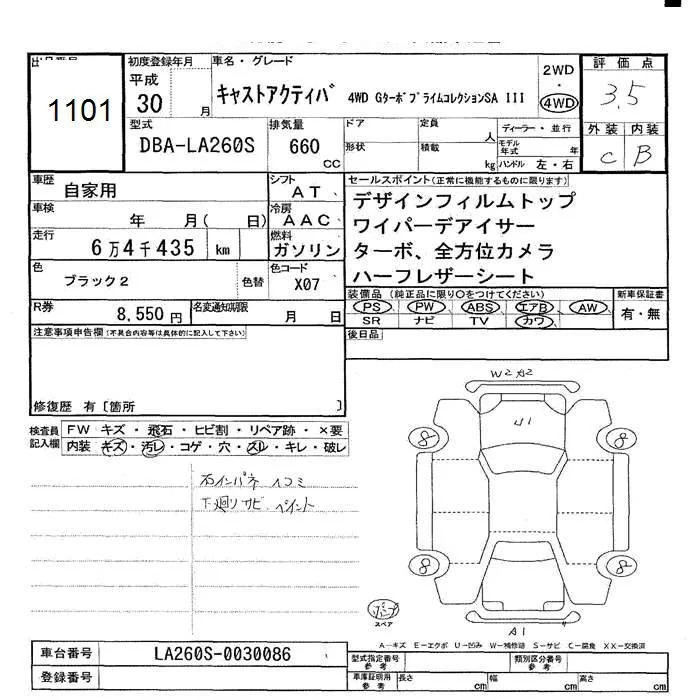 1101
初度登録年月
平成
30 月
車名・グレード
キャストアクティバ 4WD GターボプライムコレクションSA III
2WD
・
4WD
評価点
3.5
外装 内装
C B
型式
DBA-LA260S
排気量
660
CC
ドア
形状
定員
人
積載
kg
ディーラー・並行
モデル年式 年
ハンドル 左・右
車歴
自家用
シフト
AT
車検
年 月( 日)
冷房
AAC
走行
6万4千435 km
燃料
ガソリン
色
ブラック2
色替
色コード
X07
R券
8,550円
名変通知期限
月 日
セールスポイント(正常に機能するものに限ります)
デザインフィルムトップ
ワイパーデアイサー
ターボ、全方位カメラ
ハーフレザーシート
装備品 (純正品に限り○をつけてください)
PS PW ABS エアB AW
SR ナビ TV カワ
新車保証書
有・無
後日品
注意事項申告欄(不具合内容等は具体的に記入して下さい)
修復歴 有[箇所 ]
検査員
記入欄
FW キズ・飛石・ヒビ割・リペア跡・×要
内装 キズ・汚レ・コゲ・穴・スレ・キレ・破レ
インパネ
下廻りサビ ペイント
W2 A2
U1
8
8
8
8
スペア
A1
A-キズ E-エクボ U-凹み W-補修跡 S-サビ C-腐食 XX-交換済
車台番号
LA260S-0030086
登録番号
型式指定番号
参考
類別区分番号
参考
車庫証明用
参考
長さ cm
幅 cm
高さ cm